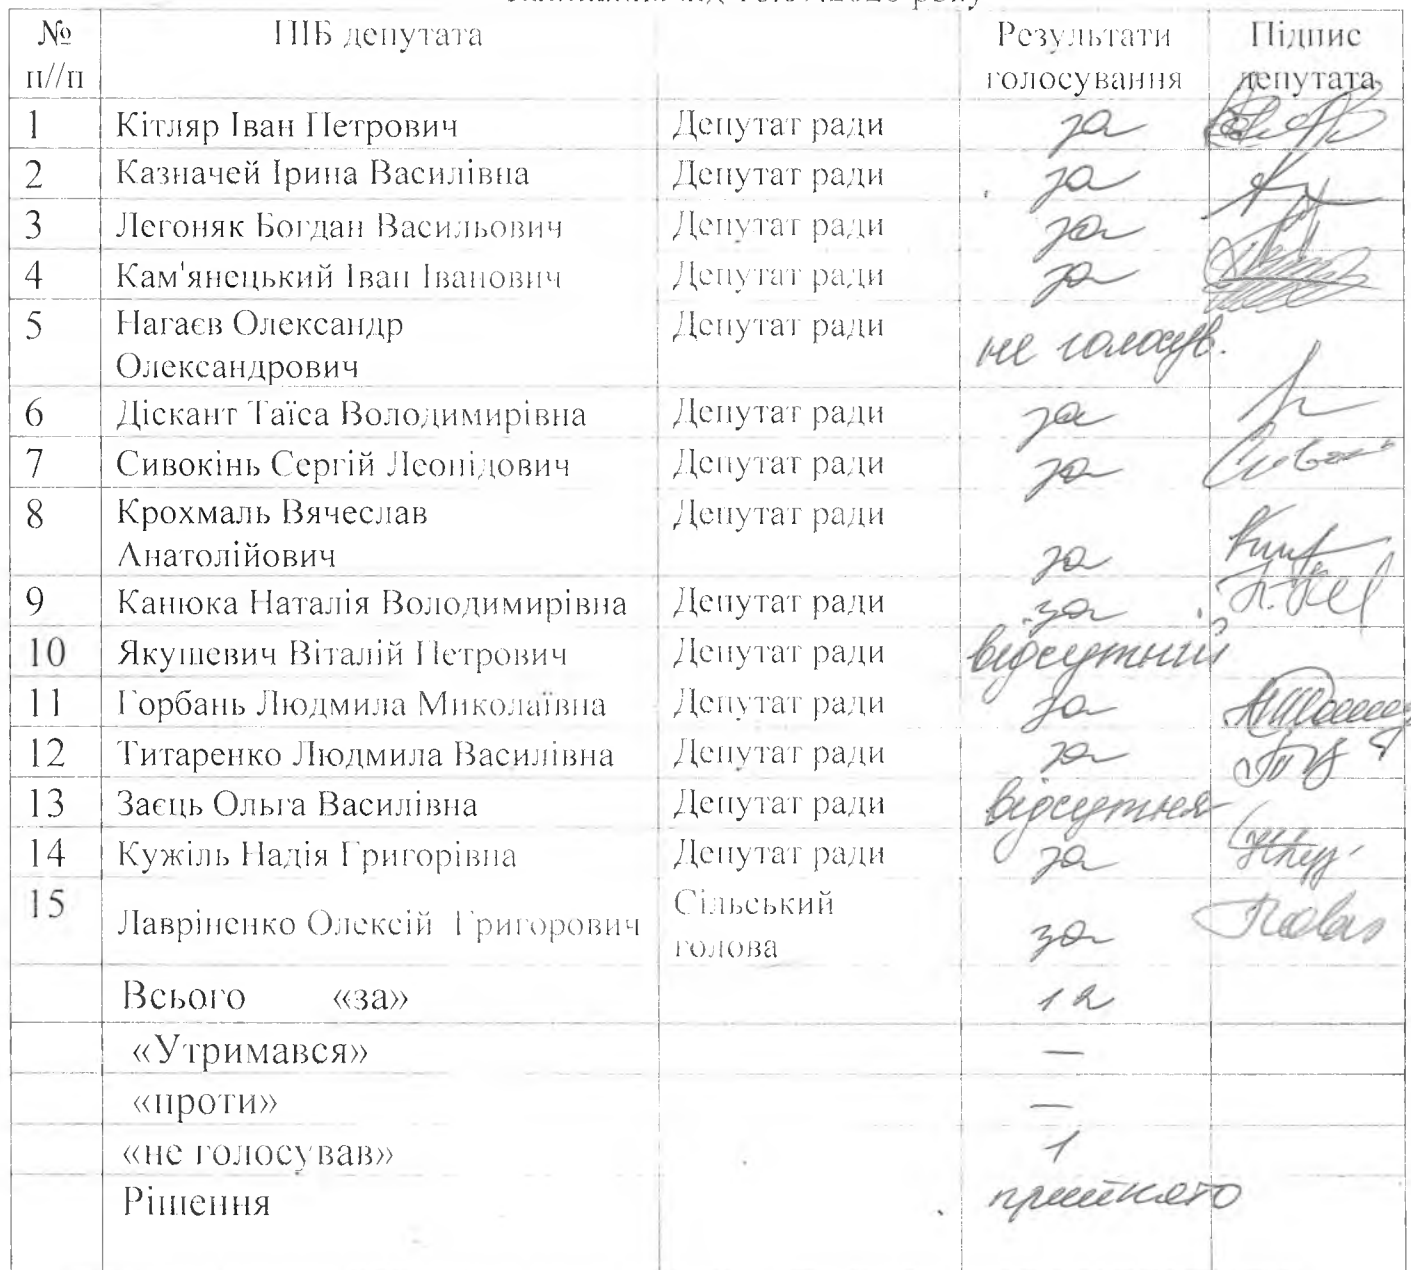 № ПІБ депутата Результати Підпис
п//п голосування депутата
1 Кітляр Іван Петрович Депутат ради за
2 Казначей Ірина Василівна Депутат ради за
3 Легоняк Богдан Васильович Депутат ради за
4 Кам'янецький Іван Іванович Депутат ради за
5 Нагаєв Олександр Депутат ради
Олександрович не голосув.
6 Діскант Таїса Володимирівна Депутат ради за
7 Сивокінь Сергій Леонідович Депутат ради за
8 Крохмаль Вячеслав Депутат ради
Анатолійович за
9 Канюка Наталія Володимирівна Депутат ради за
10 Якушевич Віталій Петрович Депутат ради відсутній
11 Горбань Людмила Миколаївна Депутат ради за
12 Титаренко Людмила Василівна Депутат ради за
13 Заєць Ольга Василівна Депутат ради відсутня
14 Кужіль Надія Григорівна Депутат ради за
15 Лавріненко Олексій Григорович Сільський
голова за
Всього «за» 12
«Утримався» —
«проти» —
«не голосував» 1
Рішення прийнято